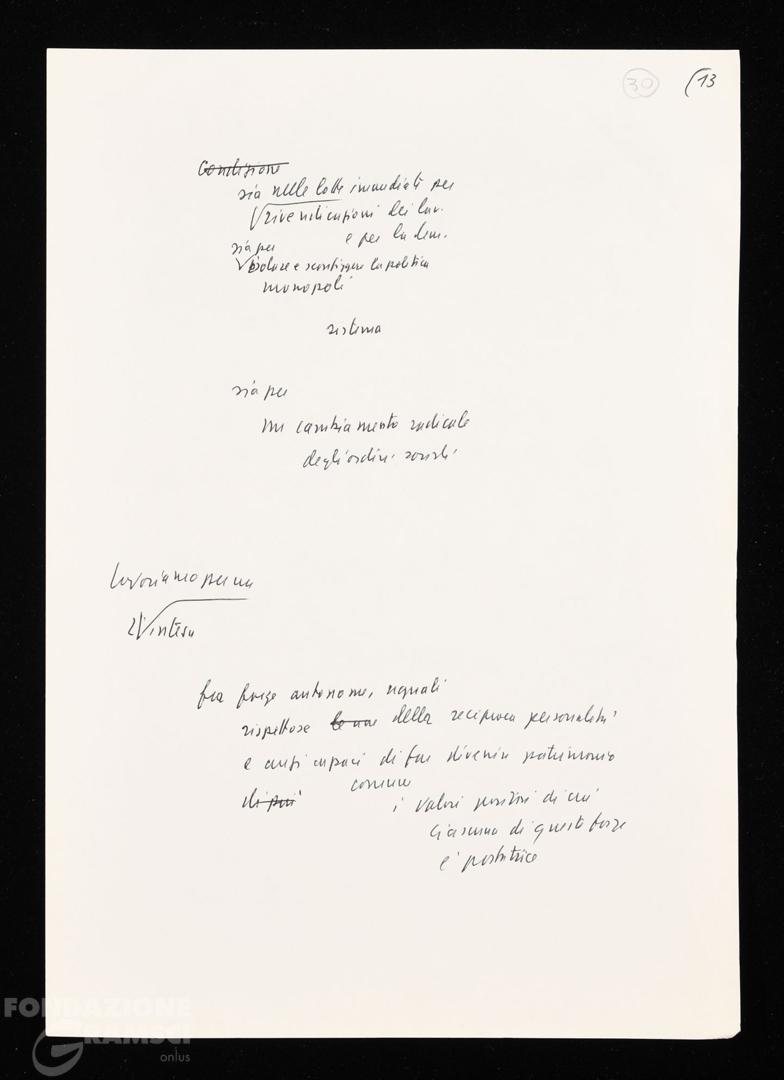 30 (13
Condizione
sia nelle lotte immediate per
rivendicazioni dei lav.
e per la dem.
sia per
isolare e sconfiggere la politica
monopoli
sistema
sia per
un cambiamento radicale
degli ordini sociali
lavoriamo per una
intesa
fra forze autonome, uguali
rispettose le une della reciproca personalità
e anzi capaci di far divenire patrimonio
di più comune
i valori positivi di cui
ciascuna di queste forze
è portatrice
FONDAZIONE
GRAMSCI
onlus